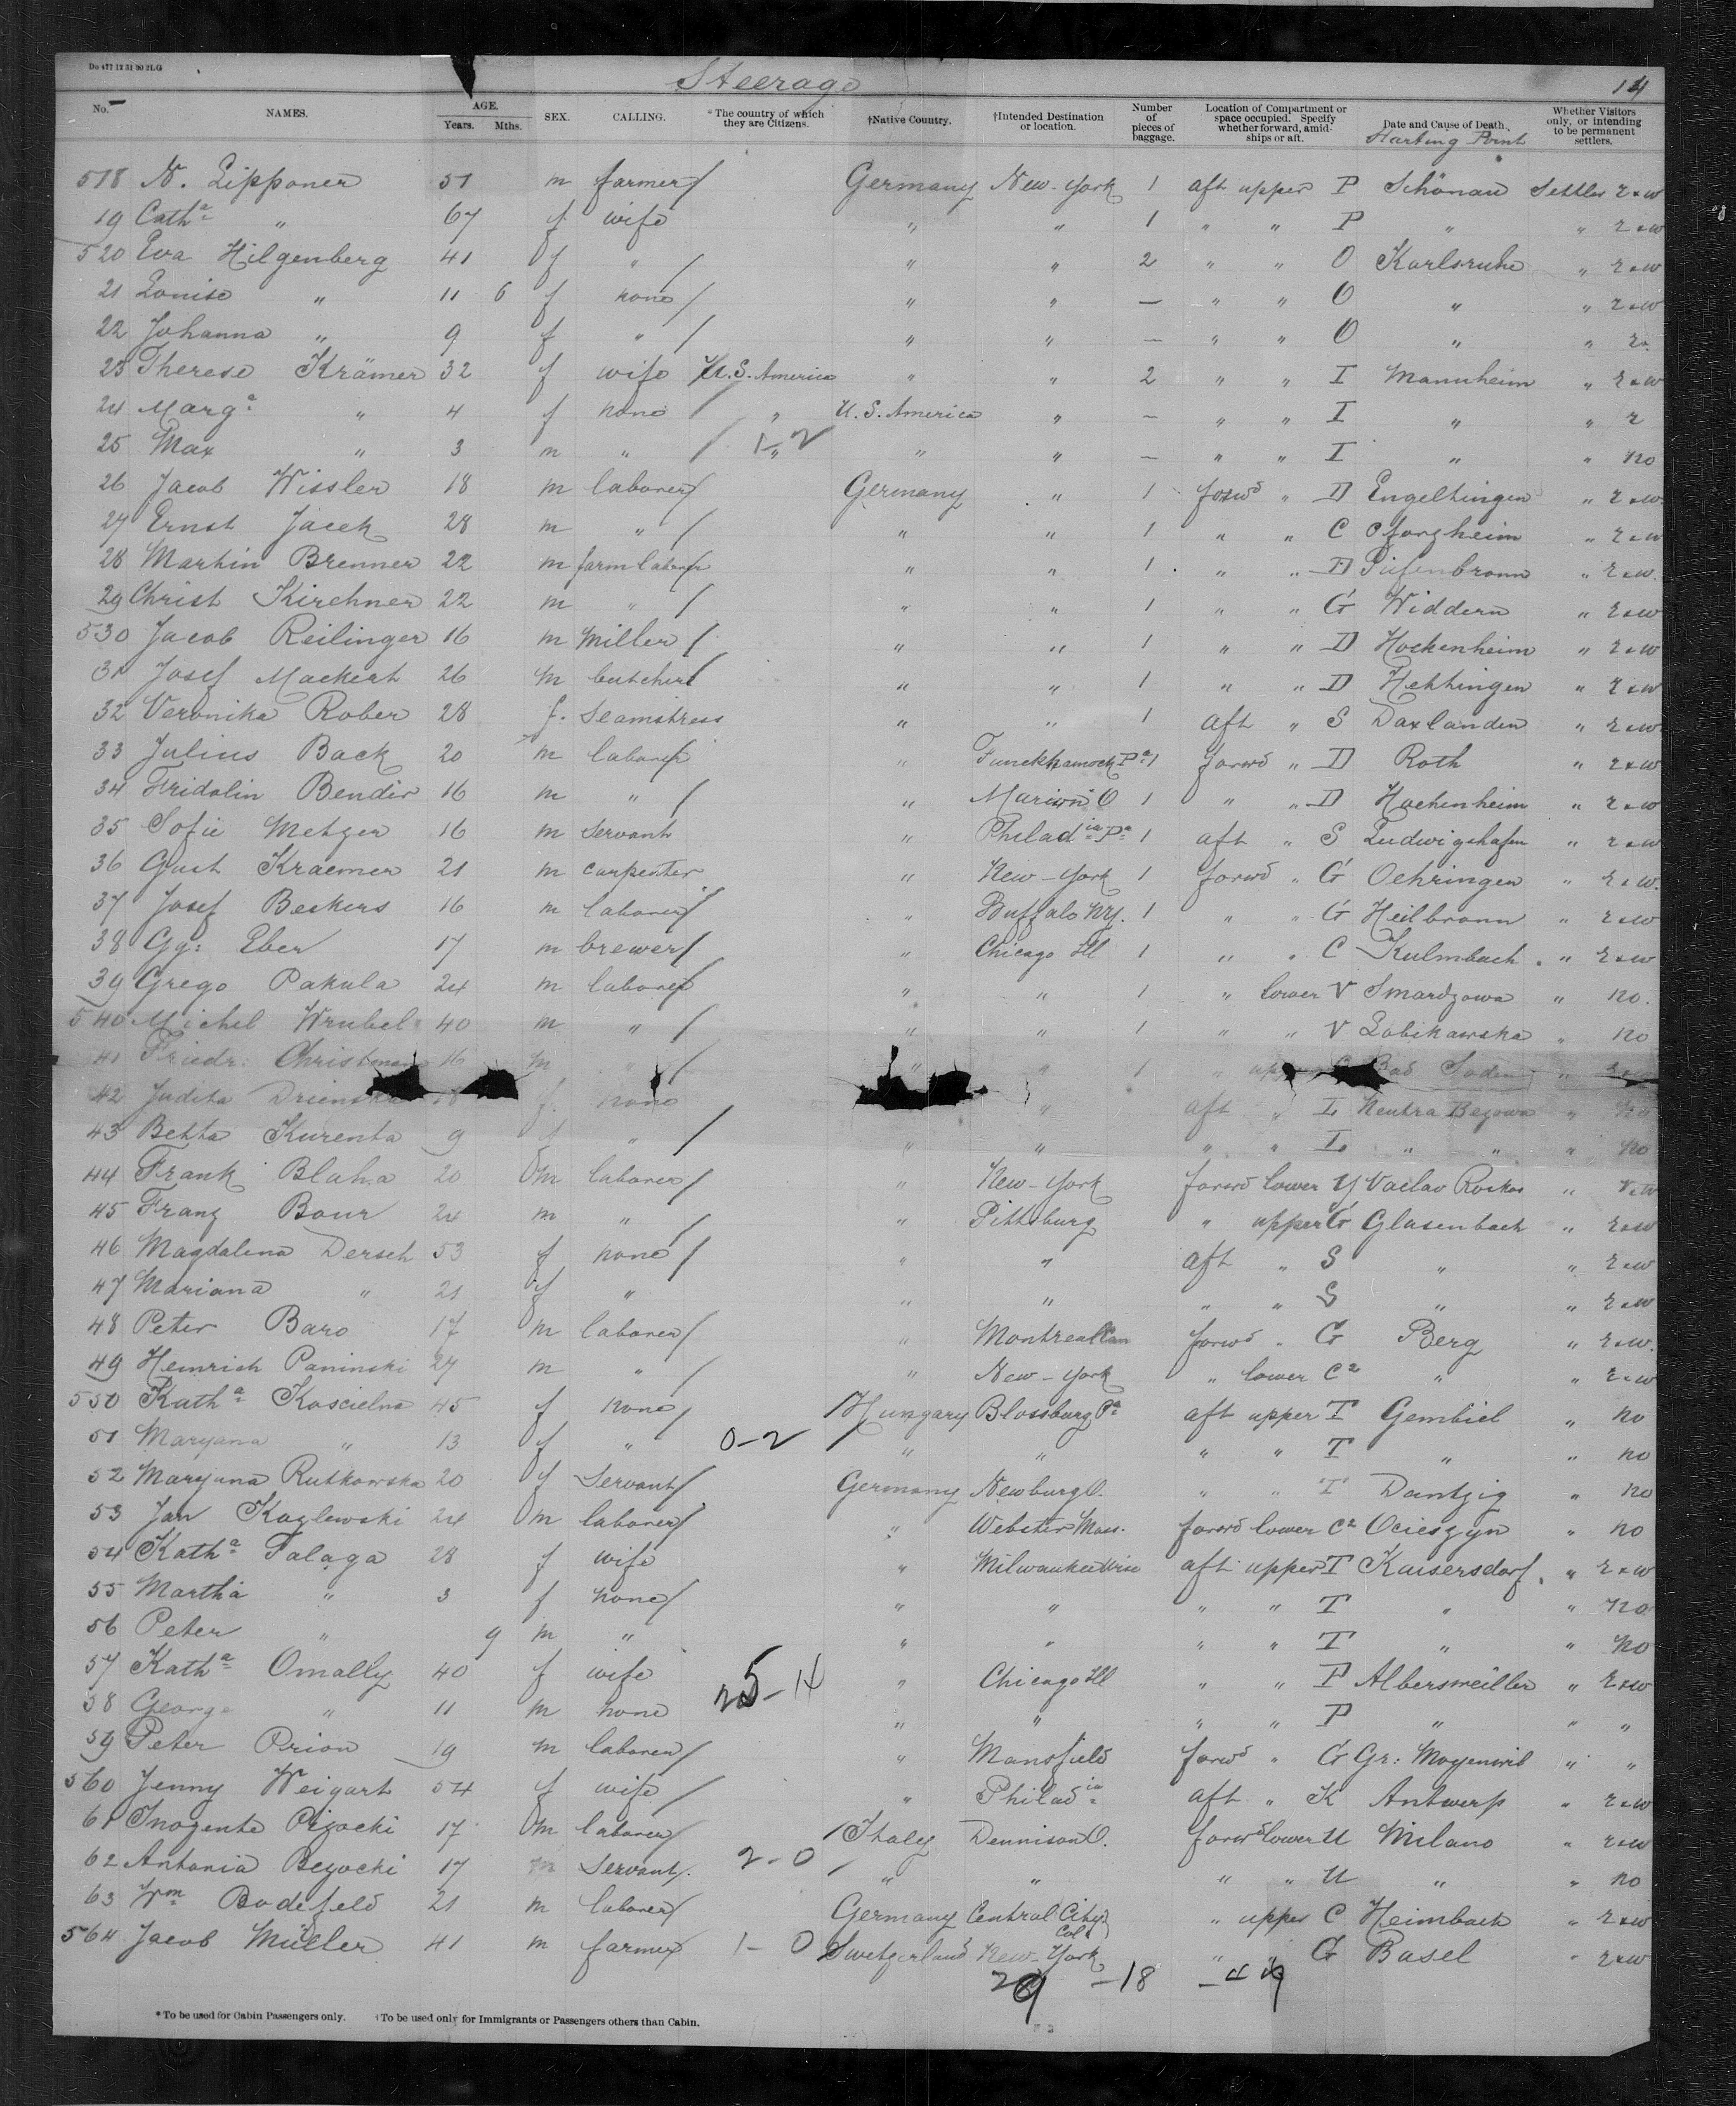 Steerage 14
No. NAMES. AGE. Years. Mths. SEX. CALLING. *The country of which they are Citizens. †Native Country. †Intended Destination or location. Number of pieces of baggage. Location of Compartment or space occupied. Specify whether forward, amidships or aft. Date and Cause of Death. Starting Point Whether Visitors only, or intending to be permanent settlers.
518 N. Lipponer 51 m farmer / Germany New-York 1 aft upper P Schönau Settler r&w
19 Cath.a " 67 f wife " " 1 " " P " " r&w
520 Eva Hilgenberg 41 f " / " " 2 " " O Karlsruhe " r&w
21 Louise " 11 6 f none / " " — " " O " " r&w
22 Johanna " 9 f " / " " — " " O " " r.
23 Therese Krämer 32 f wife U.S. America " " 2 " " I Mannheim " r&w
24 Marg.a " 4 f none / " U.S. America " — " " I " " r
25 Max " 3 m " / " 1-2 " " — " " I " " no
26 Jacob Wissler 18 m laborer / Germany " 1 forwd " D Engeltingen " r&w
27 Ernst Jacek 28 m " / " " 1 " " C Pforzheim " r&w
28 Martin Brenner 22 m farmlaborer " " 1 " " D " r&w
29 Christ Kirchner 22 m " / " " 1 " " G Widdern " r&w
530 Jacob Reilinger 16 m Miller / " " 1 " " D Hockenheim " r&w
31 Josef Mackert 26 m butcher / " " 1 " " D Hettingen " r&w
32 Veronika Rober 28 f. Seamstress " " 1 aft " S Daxlanden " r&w
33 Julius Back 20 m laborer / " Funckhannock Pa 1 forwd " D Roth " r&w
34 Fridolin Bender 16 m " / " Marion O 1 " " D Hockenheim " r&w
35 Sofie Metzger 16 m Servant " Philadia Pa 1 aft " S Ludwigshafen " r&w
36 Gust Kraemer 21 m carpenter " New-York 1 forwd " G Oehringen " r&w.
37 Josef Beskers 16 m laborer / " Buffalo NY. 1 " " G Heilbronn " r&w
38 Gg: Eber 17 m brewer / " Chicago Ill 1 " " C Kulmbach " r&w
39 Grego Pakula 24 m laborer / " " 1 " lower V Smardzowa " no.
540 Michel Wrubel 40 m " / " " 1 " " V Lobikawska " no
41 Friedr: Christmann 16 m " / " " 1 " upper Bad Soden " r&w
42 Judita f. none " aft " L Neutra Begowa " no
43 Betta Kurenta 9 f " / " " " " L " " " no
44 Frank Blaha 20 m laborer / " New-York forwd lower Y Vaclav Roskos " r&w
45 Franz Bour 24 m " / " Pittsburg " upper G Glasenbach " r&w
46 Magdalena Dersch 53 f none / " " aft " S " " r&w
47 Mariana " 21 f " " " " " S " " r&w
48 Peter Baro 17 m laborer / " Montreal Can forwd " G Berg " r&w.
49 Heinrich Paninski 27 m " / " New-York " lower C2 " " r&w
550 Kath.a Koscielna 45 f none / Hungary Blossburg Pa aft upper T Gembiel " no
51 Maryana " 13 f " 0-2 " " " " T " " no
52 Maryana Rutkowska 20 f Servant / Germany Newburg O. " " T Dantzig " no
53 Jan Kozlewski 24 m laborer / " Webster Mass. forwd lower C2 Ocieszyn " no
54 Kath.a Talaga 28 f wife " Milwaukee Wisc aft upper T Kaisersdorf " r&w
55 Martha " 3 f none / " " " " T " " no
56 Peter " 9 m " " " " " T " " no
57 Kath.a Omally 40 f wife 25-14 " Chicago Ill " " P Albersweiller " r&w
58 George " 11 m none " " " " P " " "
59 Peter Prion 19 m laborer / " Mansfield forwd " G Gr: Moyenvil " "
560 Jenny Weigart 54 f wife / " Philadia aft " K Antwerp " r&w
61 Inogente Pizocki 17 m laborer / Italy Dennison O. forwd lower U Milano " r&w
62 Antonia Bezocki 17 m Servant / 2-0 " " " " U " " no
63 Wm Bodefeld 21 m laborer / Germany Central City Col. " upper C Heimbach " r&w
564 Jacob Müller 41 m farmer 1-0 Switzerland New-York " " G Basel " r&w
29 -18
*To be used for Cabin Passengers only. †To be used only for Immigrants or Passengers others than Cabin.